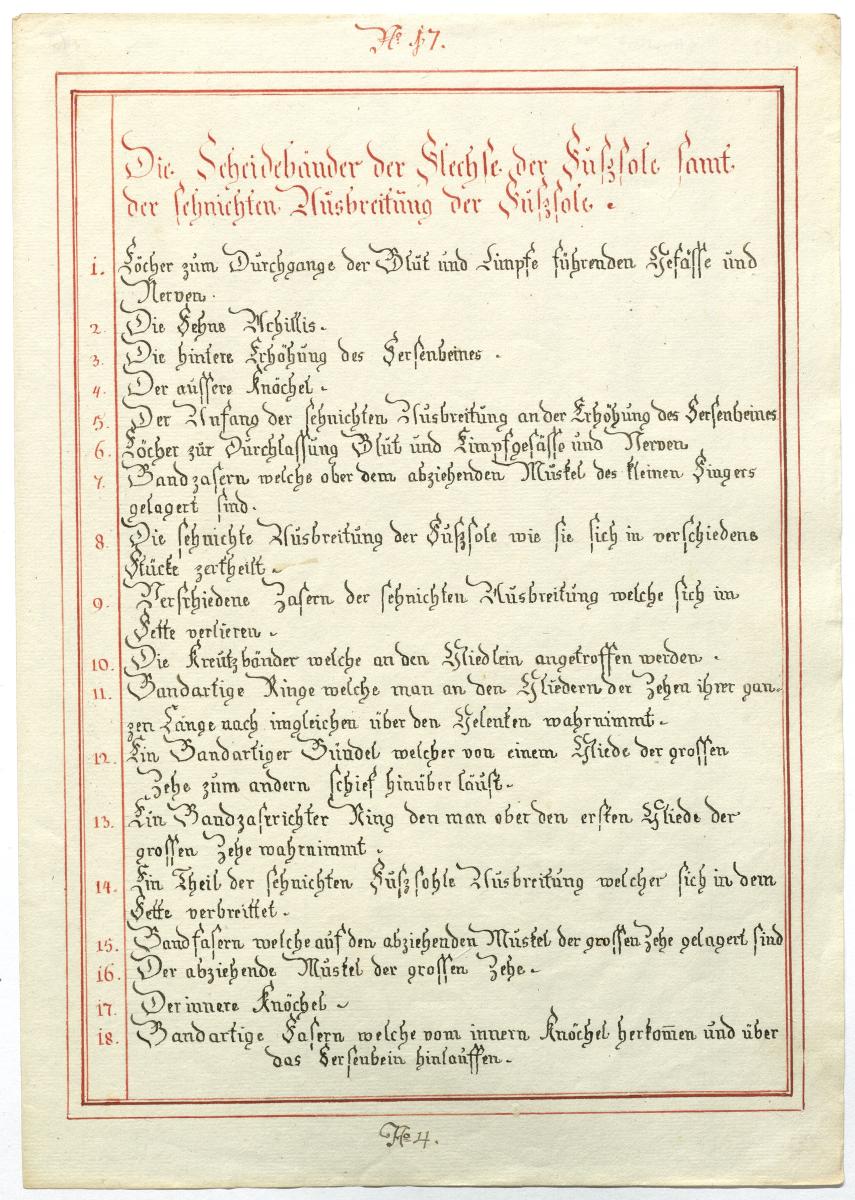 No. 17.
Die Scheidebänder der Flechse der Fußsole samt
der sehnichten Ausbreitung der Fußsole.
1. Löcher zum Durchgange der Blut und Limpfe führenden Gefässe und
Nerven.
2. Die Sehne Achillis.
3. Die hintere Erhöhung des Fersenbeines.
4. Der aussere Knöchel.
5. Der Anfang der sehnichten Ausbreitung an der Erhöhung des Fersenbeines
6. Löcher zur Durchlassung Blut und Limpfgefässe und Nerven
7. Bandzasern welche ober dem abziehenden Muskel des kleinen Fingers
gelagert sind.
8. Die sehnichte Ausbreitung der Fußsole wie sie sich in verschiedene
Stücke zertheilt.
9. Verschiedene Zasern der sehnichten Ausbreitung welche sich im
Fette verlieren.
10. Die Kreutzbänder welche an den Gliedlein angetroffen werden.
11. Bandartige Ringe welche man an den Gliedern der Zehen ihrer gan-
zen Länge nach imgleichen über den Gelenken wahrnimmt.
12. Ein Bandartiger Bündel welcher von einem Gliede der grossen
Zehe zum andern schief hinüber läuft.
13. Ein Bandzaserichter Ring den man ober den ersten Gliede der
grossen Zehe wahrnimmt.
14. Ein Theil der sehnichten Fußsohle Ausbreitung welcher sich in dem
Fette verbreittet.
15. Bandfasern welche auf den abziehenden Muskel der grossen Zehe gelagert sind
16. Der abziehende Muskel der grossen Zehe.
17. Der innere Knöchel.
18. Bandartige Fasern welche vom innern Knöchel herkom̅en und über
das Fersenbein hinlauffen.
No 4.